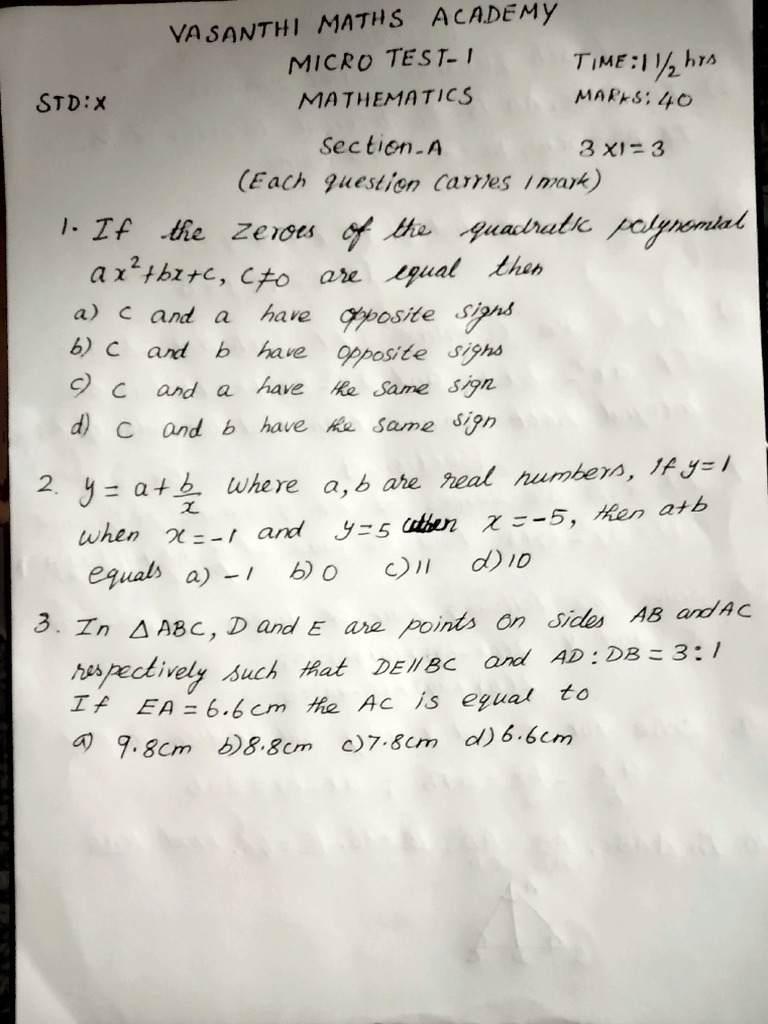 VASANTHI MATHS ACADEMY
MICRO TEST-1 TIME: 1 1/2 hrs
STD: X MATHEMATICS MARKS: 40
Section-A 3 X1 = 3
(Each question carries 1 mark)
1. If the zeroes of the quadratic polynomial
ax²+bx+c, c≠0 are equal then
a) c and a have opposite signs
b) c and b have opposite signs
c) c and a have the same sign
d) c and b have the same sign
2. y = a + b/x where a, b are real numbers, If y=1
when x = -1 and y=5 when x = -5, then a+b
equals a) -1 b) 0 c) 11 d) 10
3. In △ABC, D and E are points on sides AB and AC
respectively such that DE∥BC and AD : DB = 3 : 1
If EA = 6.6cm the AC is equal to
a) 9.8cm b) 8.8cm c) 7.8cm d) 6.6cm